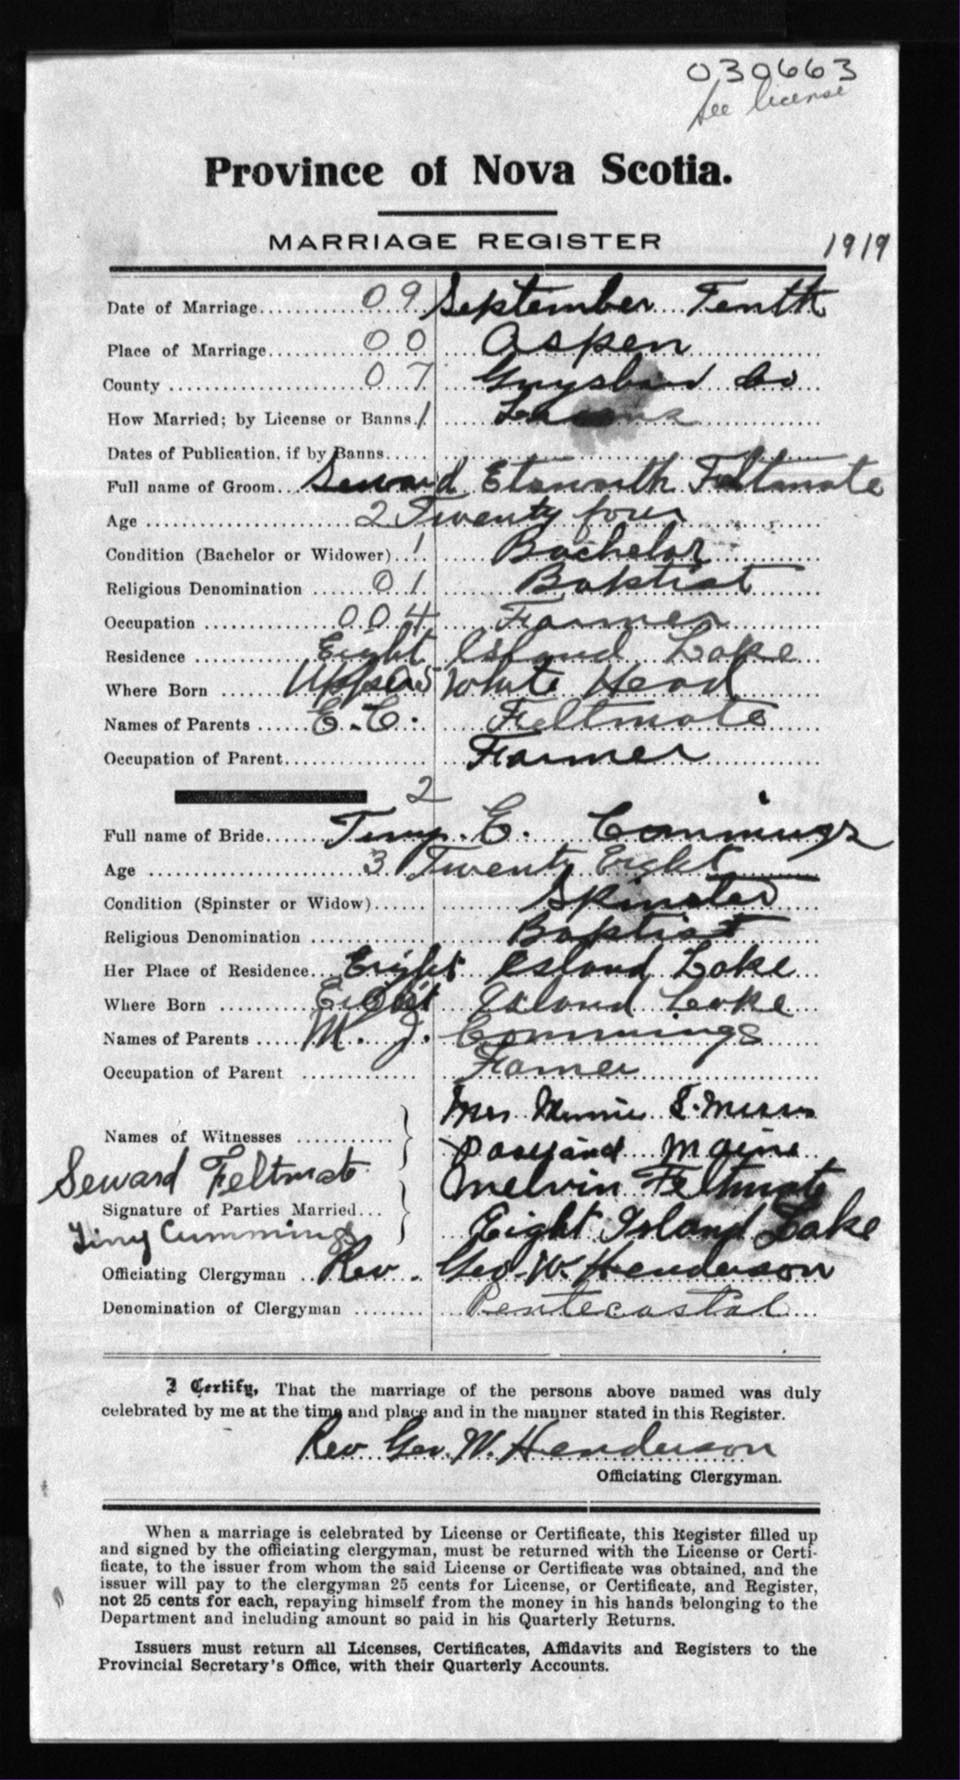 030663
See license
Province of Nova Scotia.
MARRIAGE REGISTER 1919
Date of Marriage 09 September Tenth
Place of Marriage 00 Aspen
County 07 Guysboro Co
How Married; by License or Banns 1 License
Dates of Publication, if by Banns
Full name of Groom Seward Etsworth Feltmate
Age 2 Twenty four
Condition (Bachelor or Widower) 1 Bachelor
Religious Denomination 01 Baptist
Occupation 004 Farmer
Residence Eight Island Lake
Where Born White Head
Names of Parents E. C. Feltmate
Occupation of Parent Farmer
2
Full name of Bride E. Cummings
Age 3 Twenty Eight
Condition (Spinster or Widow) Spinster
Religious Denomination Baptist
Her Place of Residence Eight Island Lake
Where Born Eight Island Lake
Names of Parents M. J. Cummings
Occupation of Parent Farmer
Mrs Minnie S.
Names of Witnesses Maine
Seward Feltmate Melvin Feltmate
Signature of Parties Married Eight Island Lake
Tiny Cummings
Officiating Clergyman Rev. Geo. W. Henderson
Denomination of Clergyman Pentecostal
I Certify, That the marriage of the persons above named was duly
celebrated by me at the time and place and in the manner stated in this Register.
Rev Geo. W. Henderson
Officiating Clergyman.
When a marriage is celebrated by License or Certificate, this Register filled up
and signed by the officiating clergyman, must be returned with the License or Certi-
ficate, to the issuer from whom the said License or Certificate was obtained, and the
issuer will pay to the clergyman 25 cents for License, or Certificate, and Register,
not 25 cents for each, repaying himself from the money in his hands belonging to the
Department and including amount so paid in his Quarterly Returns.
Issuers must return all Licenses, Certificates, Affidavits and Registers to the
Provincial Secretary's Office, with their Quarterly Accounts.